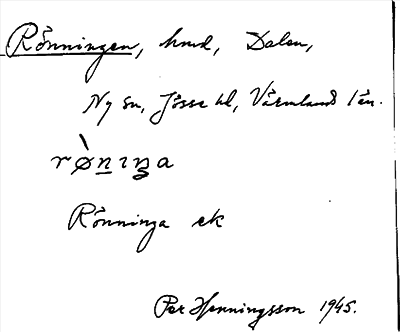 Rönningen, hmd, Dalen,
Ny sn, Jösse hd, Värmlands län.
rø̀n̲ıŋa
Rönninga ek
Per Henningsson 1945.